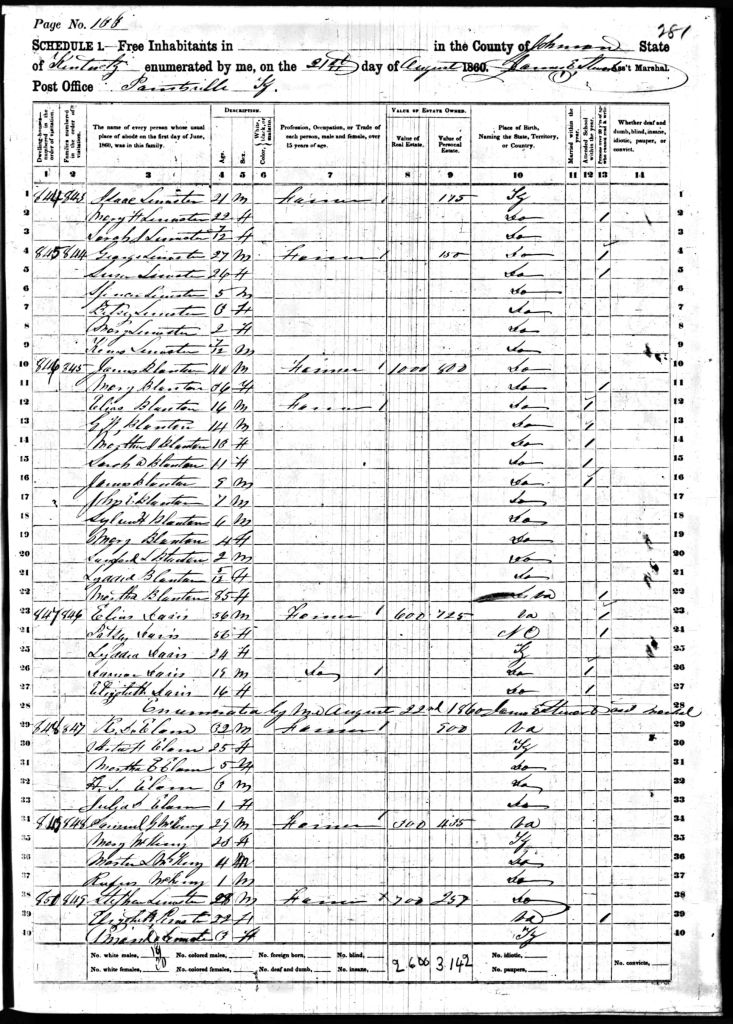 Page No. 166
281
SCHEDULE 1. Free Inhabitants in in the County of Johnson State
of Kentucky enumerated by me, on the 21st day of August 1860. James E. Stewart Ass't Marshal.
Post Office Paintsville Ky.
Dwelling-houses numbered in the order of visitation.
Families numbered in the order of visitation.
The name of every person whose usual place of abode on the first day of June, 1860, was in this family.
DESCRIPTION.
Age.
Sex.
Color, White, black, or mulatto.
Profession, Occupation, or Trade of each person, male and female, over 15 years of age.
VALUE OF ESTATE OWNED.
Value of Real Estate.
Value of Personal Estate.
Place of Birth, Naming the State, Territory, or Country.
Married within the year.
Attended School within the year.
Persons over 20 y'rs of age who cannot read & write.
Whether deaf and dumb, blind, insane, idiotic, pauper, or convict.
1 2 3 4 5 6 7 8 9 10 11 12 13 14
1 844 843 Isaac Lemaster 21 M Farmer 1 175 Ky 1
2 Mary Lemaster 22 F Do 1 2
3 Sarah J Lemaster 7/12 F Do 3
4 845 844 George Lemaster 27 M Farmer 1 150 Do 1 4
5 Susan Lemaster 26 F Do 1 5
6 Spencer Lemaster 5 M Do 6
7 Lemaster 3 F Do 7
8 Mary Lemaster 2 F Do 8
9 Lemaster /12 M Do 9
10 846 845 James Blanton 40 M Farmer 1 1000 800 Do 10
11 Mary Blanton 36 F Do 1 11
12 Elias Blanton 16 M Farmer 1 Do 1 12
13 G W Blanton 14 M Do 1 13
14 Martha J Blanton 13 F Do 1 14
15 Sarah A Blanton 11 F Do 1 15
16 James Blanton 9 M Do 1 16
17 John E Blanton 7 M Do 17
18 Blanton 6 M Do 18
19 Mary Blanton 4 F Do 19
20 Blanton 2 M Do 20
21 Lydda Blanton 5/12 F Do 21
22 Martha Blanton 85 F Va 1 22
23 847 846 Elias Davis 56 M Farmer 1 600 725 Va 1 23
24 Patsy Davis 56 F NC 1 24
25 Lydda Davis 24 F Ky 25
26 Davis 19 M Do 1 Do 1 26
27 Elizabeth Davis 16 F Do 1 27
28 Enumerated by Me August 22nd 1860 James E Stewart asst marshal 28
29 848 847 Elam 32 M Farmer 1 500 Va 29
30 Elam 25 F Ky 30
31 Martha E Elam 5 F Do 31
32 Elam 3 M Do 32
33 Julya Elam 1 F Do 33
34 849 848 Samuel G McKeny 29 M Farmer 1 300 435 Va 34
35 Mary McKeny 28 F Ky 35
36 McKeny 4 M Do 36
37 Rufus McKeny 1 M Do 37
38 850 849 Stephen Lemaster 28 M Farmer 700 257 Do 38
39 Elizabeth Lemaster 22 F Va 1 39
40 Lemaster 3 F Ky 40
No. white males, 19 No. colored males, No. foreign born, No. blind, 2600 3.142 No. idiotic, No. convicts,
No. white females, 20 No. colored females, No. deaf and dumb, No. insane, No. paupers,